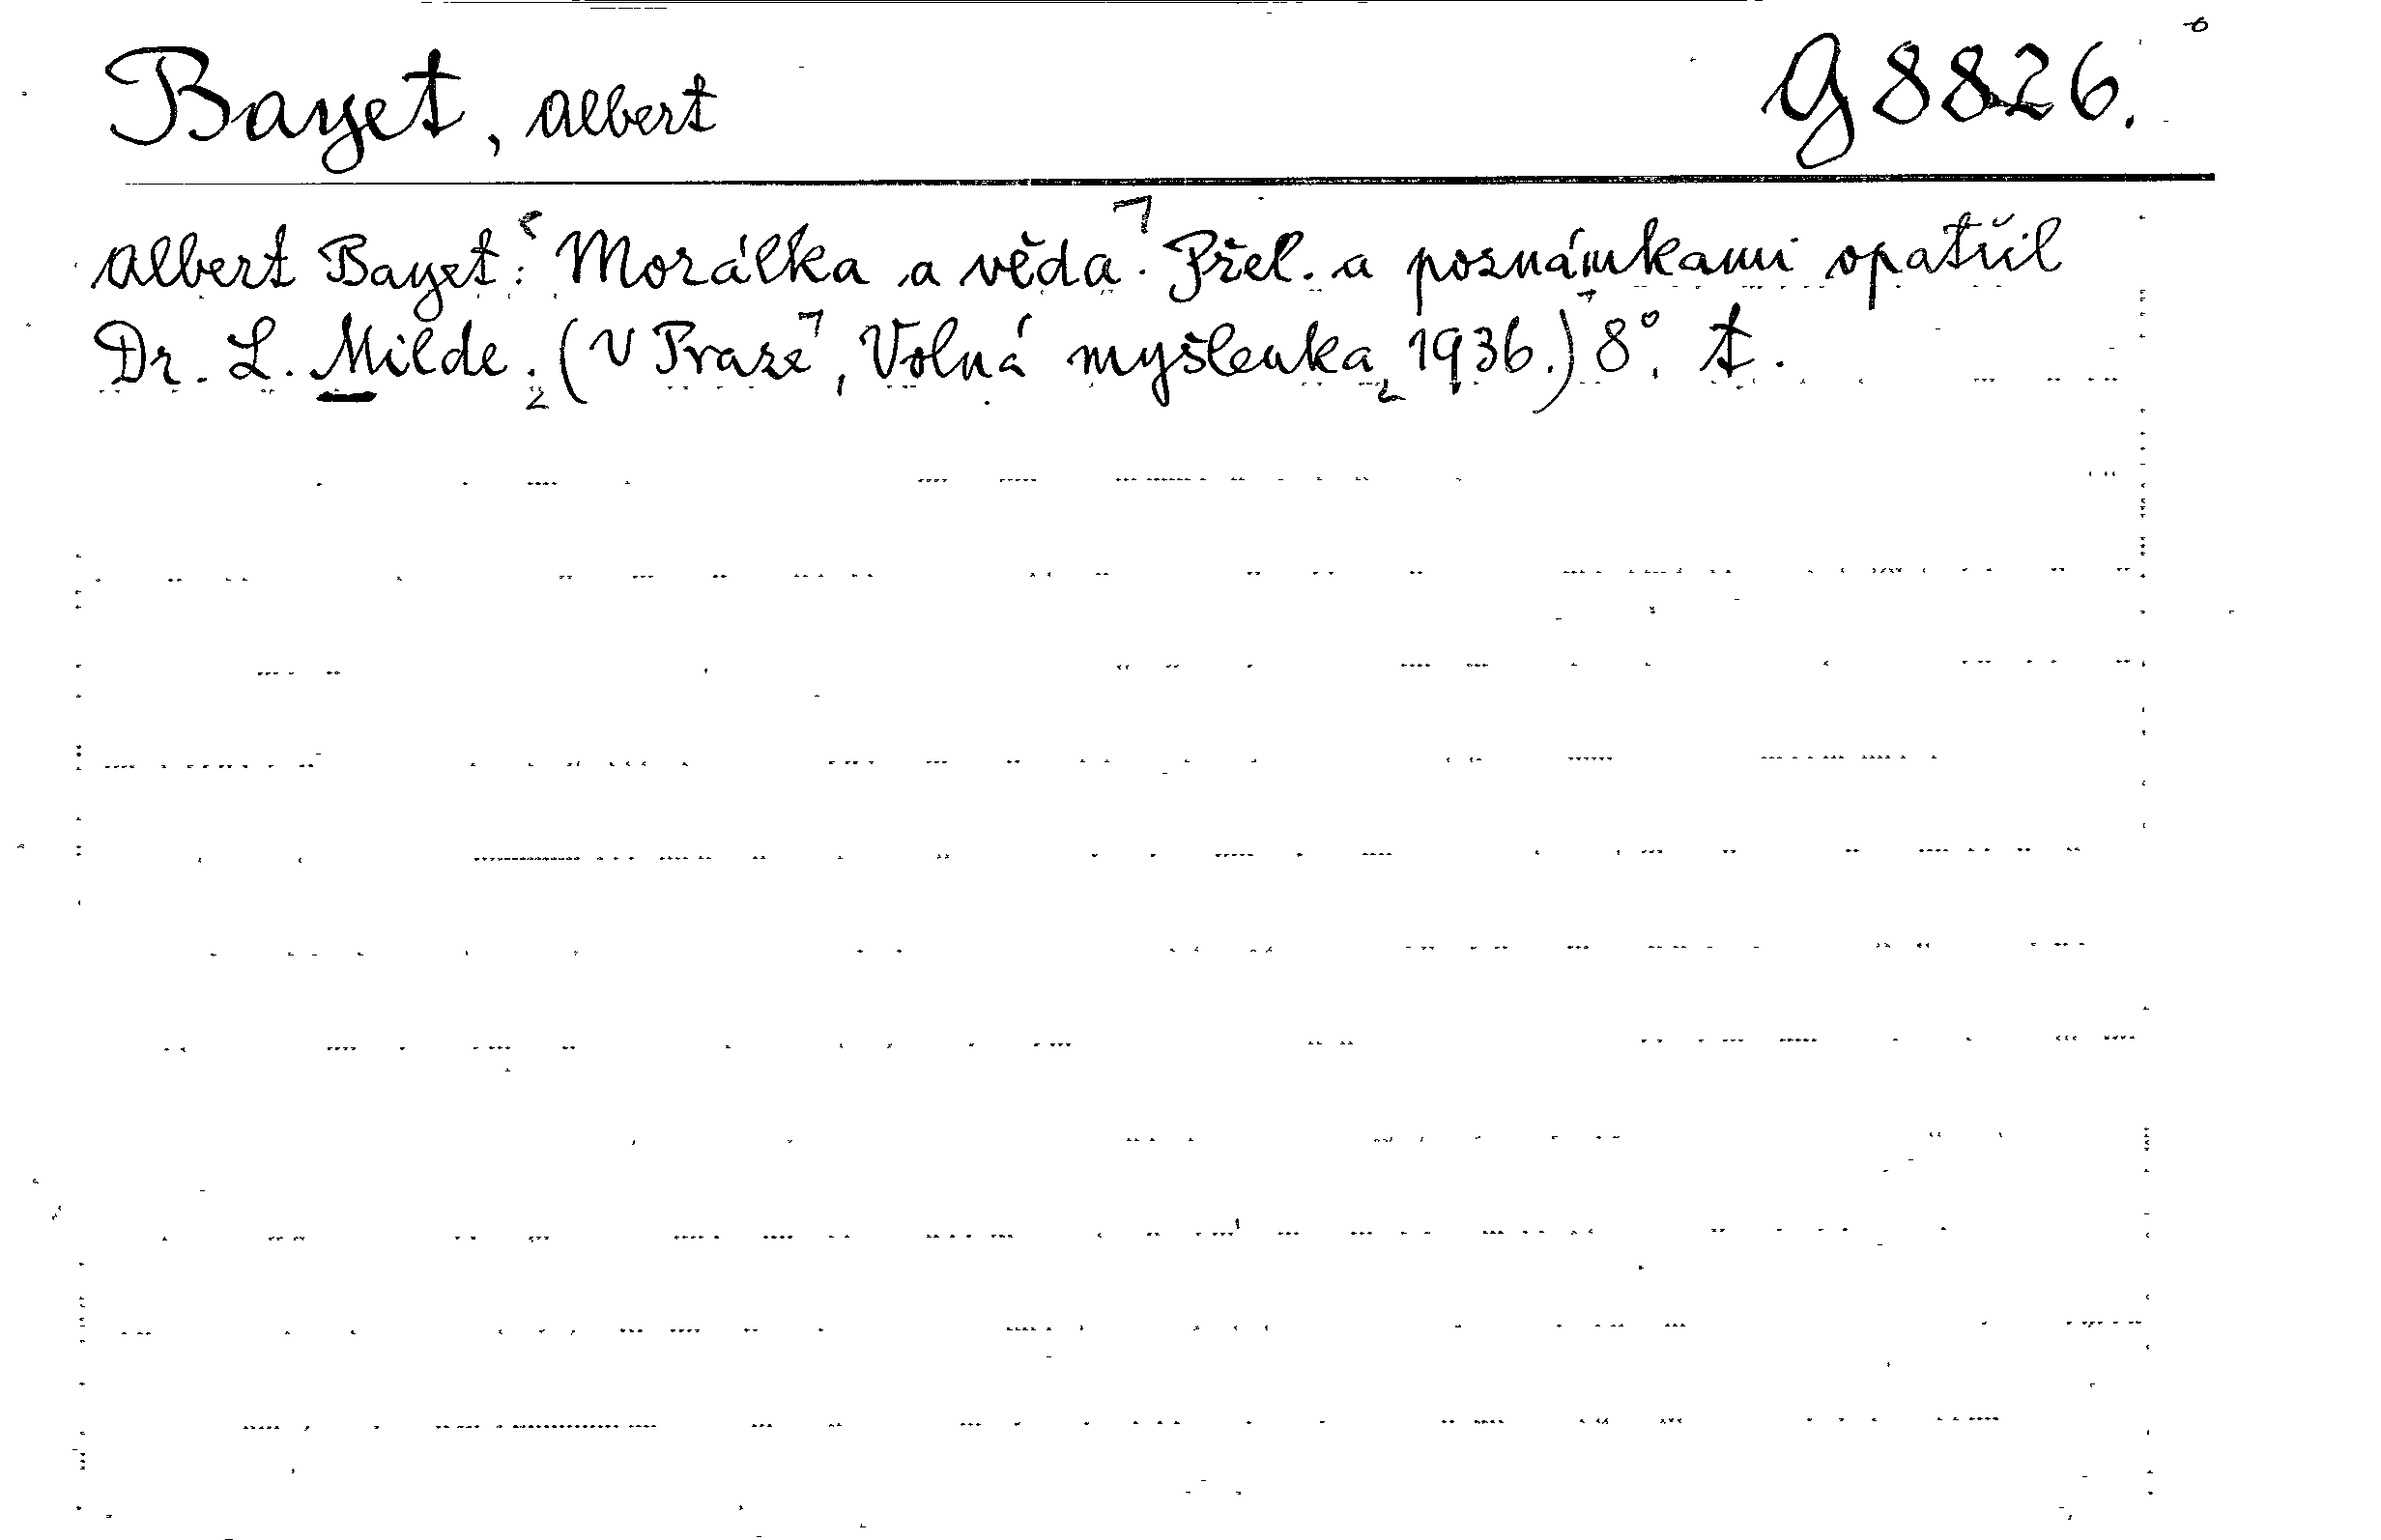 Bayet, Albert G 8826.
Albert Bayet: Morálka a věda. Přel. a poznámkami opatřil
Dr. L. Milde. (V Praze, Volná myšlenka, 1936.) 8°. t.